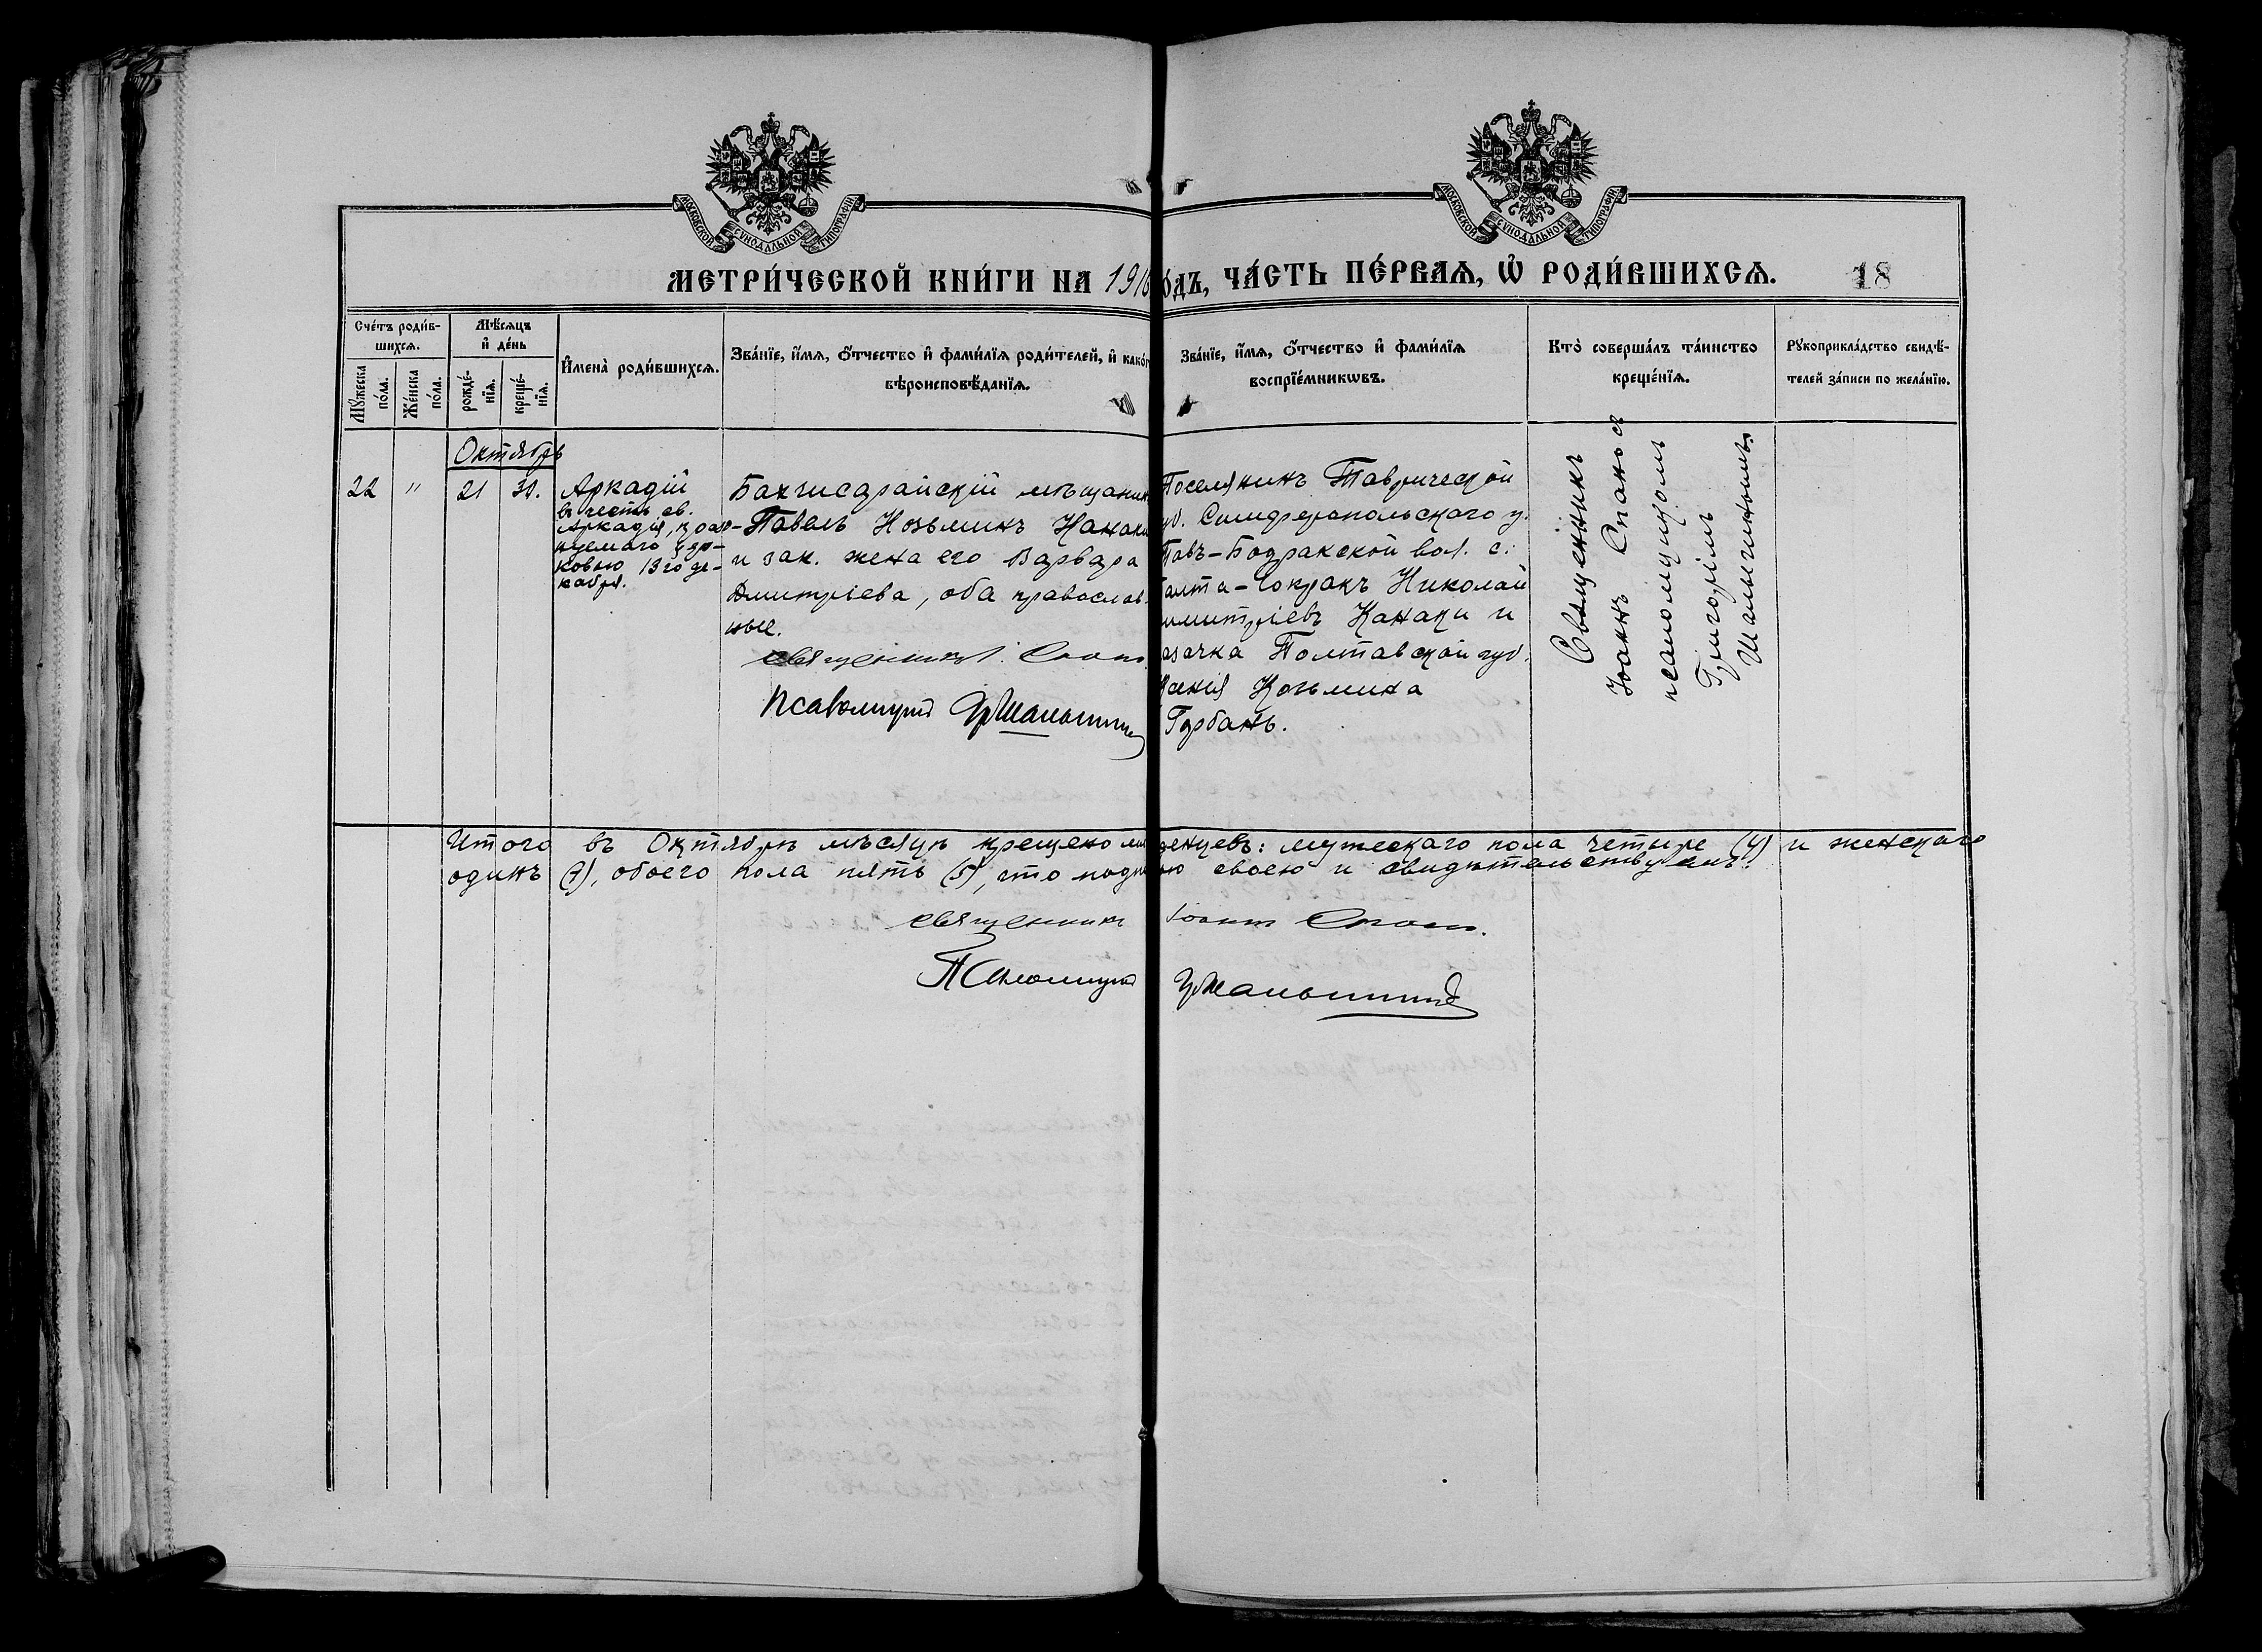 МОСКОВСКОЙ СУНОДАЛЬНОЙ ТИПОГРАФІИ
МОСКОВСКОЙ СУНОДАЛЬНОЙ ТИПОГРАФІИ
МЕТРИ́ЧЕСКОЙ КНИ́ГИ НА 1916
О́ДЪ, ЧА́СТЬ ПЕ́РВАѦ, Ѡ҆ РОДИ́ВШИХСѦ.
18
Сче́тъ роди́в-
шихсѧ.
Мꙋ́жеска
по́ла.
Же́нска
по́ла.
Мѣ́сѧцъ
и҆ де́нь
рожде́-
нїѧ.
креще́-
нїѧ.
И҆мена̀ роди́вшихсѧ.
Зва́нїе, и҆́мѧ, ѻ҆́тчество и҆ фами́лїѧ роди́телей, и҆ како́г
вѣроисповѣ́данїѧ.
Зва́нїе, и҆́мѧ, ѻ҆́тчество и҆ фами́лїѧ
воспрїе́мникѡвъ.
Кто̀ соверша́лъ та́инство
креще́нїѧ.
Рꙋкоприкла́дство свидѣ́-
телей за́писи по жела́нїю.
Октябрь
22 " 21 30.
Аркадій
въ честь св.
Аркадія, празд-
нуемаго цер-
ковью 13го де-
кабря.
Бахчисарайскій мѣщанин
-Павелъ Козьминъ Канаки
и зак. жена его Варвара
Дмитріева, оба православ-
ные.
Священникъ І. Спан
Псаломщикъ Гр Шалыгин
Поселянинъ Таврической
уб. Симферопольскаго у.
Тавъ-Бодракской вол. с.
алта-Чокракъ Николай
имитріевъ Канаки и
азачка Полтавской губ.
сенія Козьмина
Горбань.
Священникъ
Іоаннъ Спаносъ
псаломщикомъ
Григоріемъ
Шалыгинымъ.
Итого въ Октябрѣ мѣсяцѣ крещено мла
денцевъ: мужескаго пола четыре (4) и женскаго
одинъ (1), обоего пола пять (5), что подпи
ью своею и свидѣтельствуемъ.
Священникъ Іоаннъ Спан
Псаломщикъ Гр Шалыгинъ